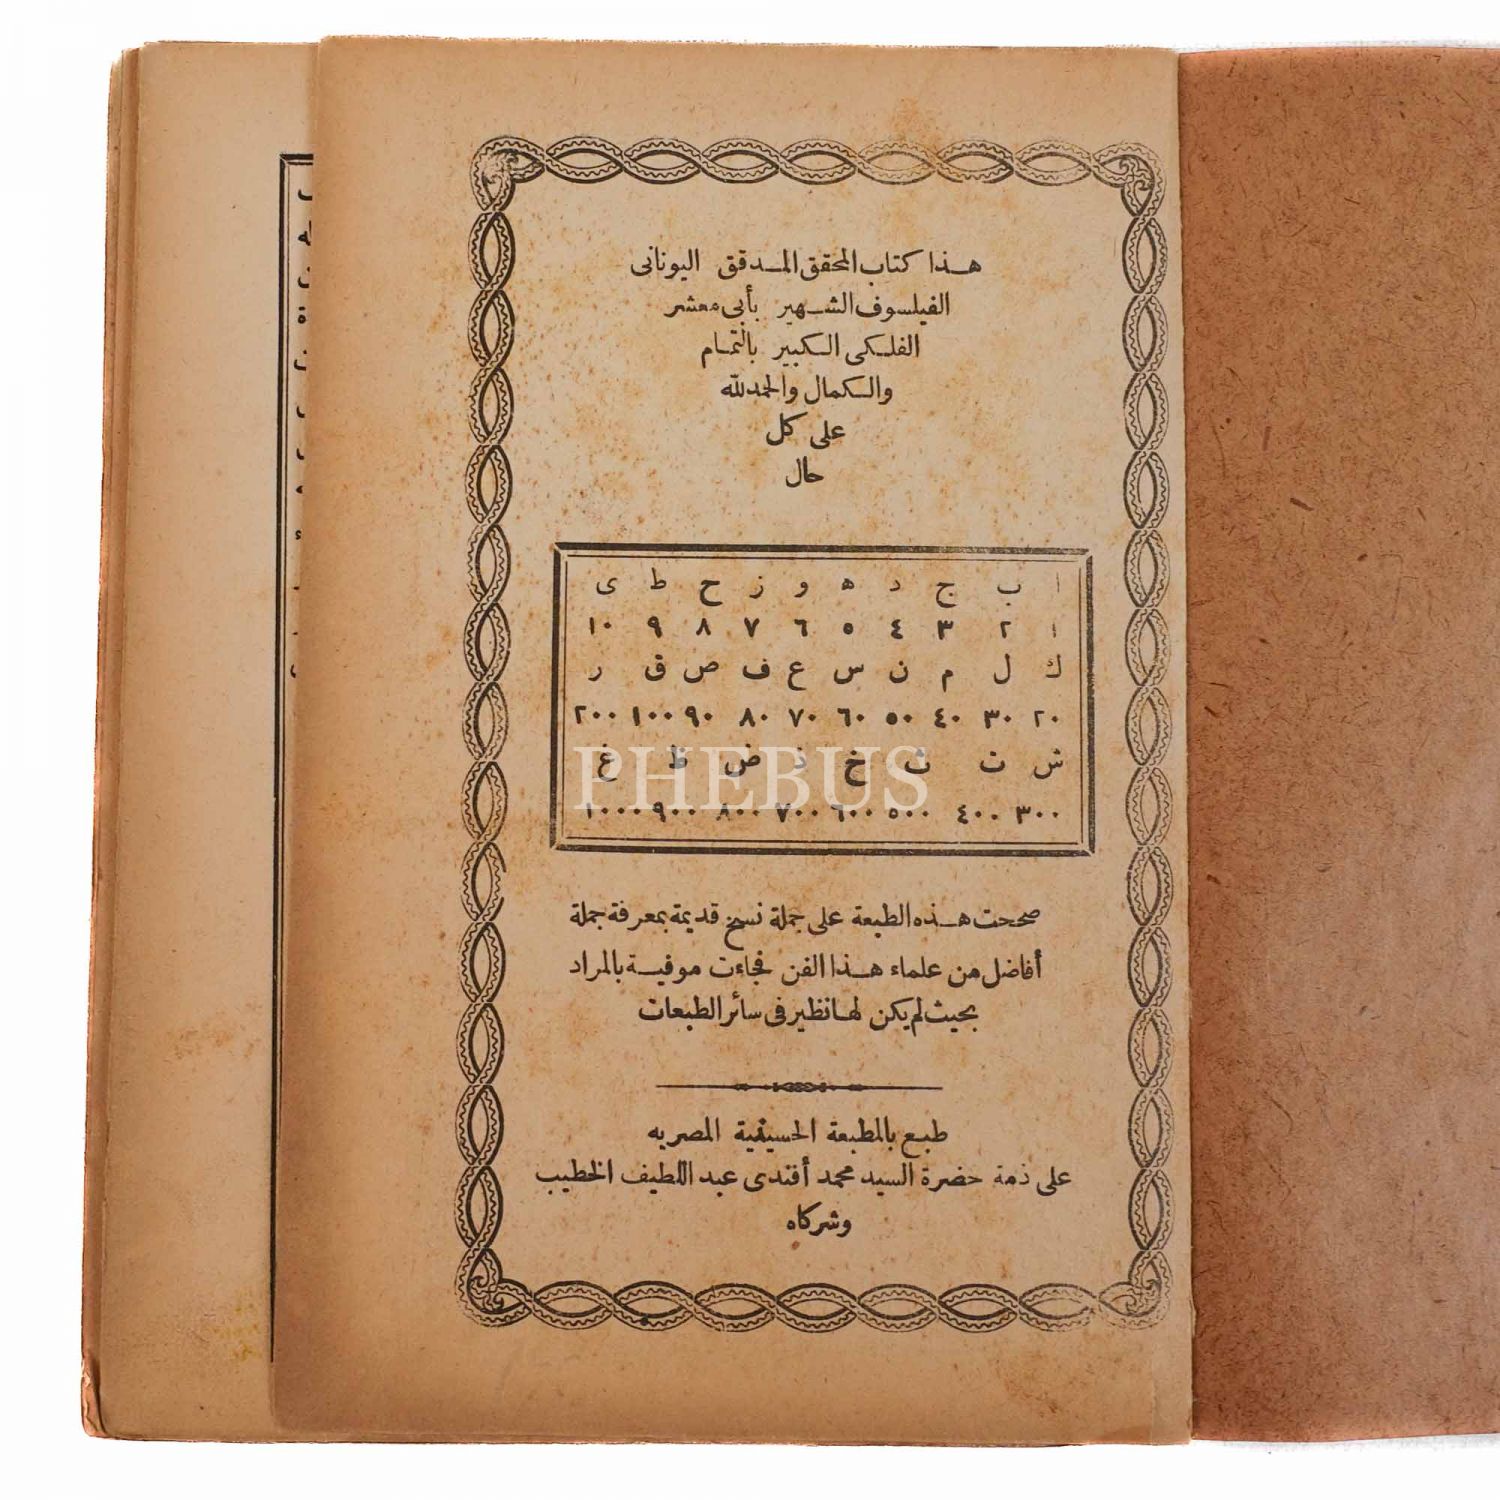 هذا كتاب المحقق المدقق اليونانى
الفيلسوف الشهير بأبى معشر
الفلكى الكبير بالتمام
والكمال والحمد لله
على كل
حال
ا ب ج د ه و ز ح ط ى
١ ٢ ٣ ٤ ٥ ٦ ٧ ٨ ٩ ١٠
ك ل م ن س ع ف ص ق ر
٢٠ ٣٠ ٤٠ ٥٠ ٦٠ ٧٠ ٨٠ ٩٠ ١٠٠ ٢٠٠
ش ت ث خ ذ ض ظ غ
٣٠٠ ٤٠٠ ٥٠٠ ٦٠٠ ٧٠٠ ٨٠٠ ٩٠٠ ١٠٠٠
PHEBUS
صححت هذه الطبعة على جملة نسخ قديمة بمعرفة جملة
أفاضل من علماء هذا الفن فجاءت موفية بالمراد
بحيث لم يكن لها نظير فى سائر الطبعات
طبع بالمطبعة الحسينية المصريه
على ذمة حضرة السيد محمد أفندى عبد اللطيف الخطيب
وشركاه